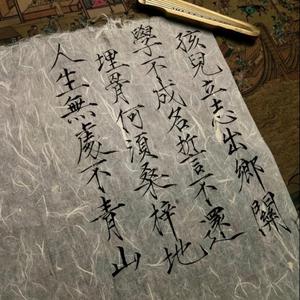 孩兒立志出鄉關
學不成名誓言不還
埋骨何須桑梓地
人生無處不青山